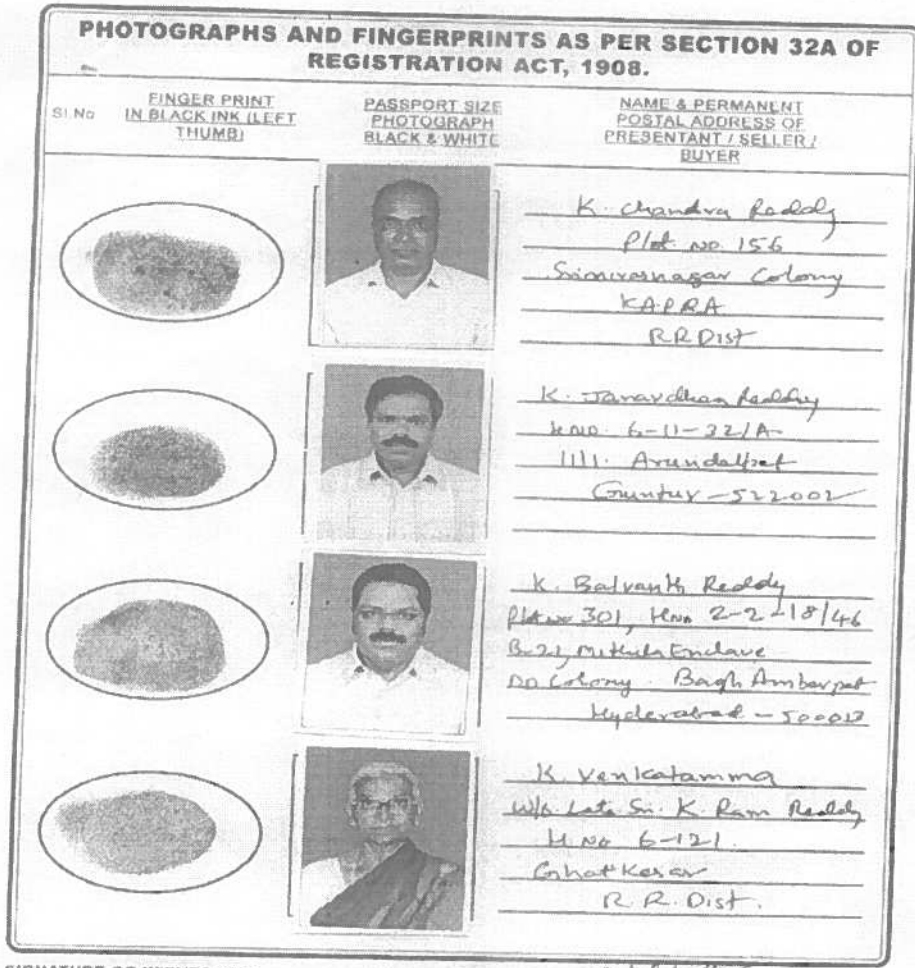 PHOTOGRAPHS AND FINGERPRINTS AS PER SECTION 32A OF
REGISTRATION ACT, 1908.
Sl.No
FINGER PRINT
IN BLACK INK (LEFT
THUMB)
PASSPORT SIZE
PHOTOGRAPH
BLACK & WHITE
NAME & PERMANENT
POSTAL ADDRESS OF
PRESENTANT / SELLER /
BUYER
K. Chandra Reddy
Plot No 156
Srinivasnagar Colony
KAPRA
R.R Dist
K. Janardhan Reddy
H.NO. 6-11-32/A
1111. Arundalpet
Guntur - 522002
K. Balvanth Reddy
Plot No 301, H.No 2-2-18/46
B-21, Mithila Enclave
DD Colony. Bagh Amberpet
Hyderabad - 500013
K. Venkatamma
W/o Late Sri. K. Ram Reddy
H.No 6-121
Ghatkesar
R.R. Dist.